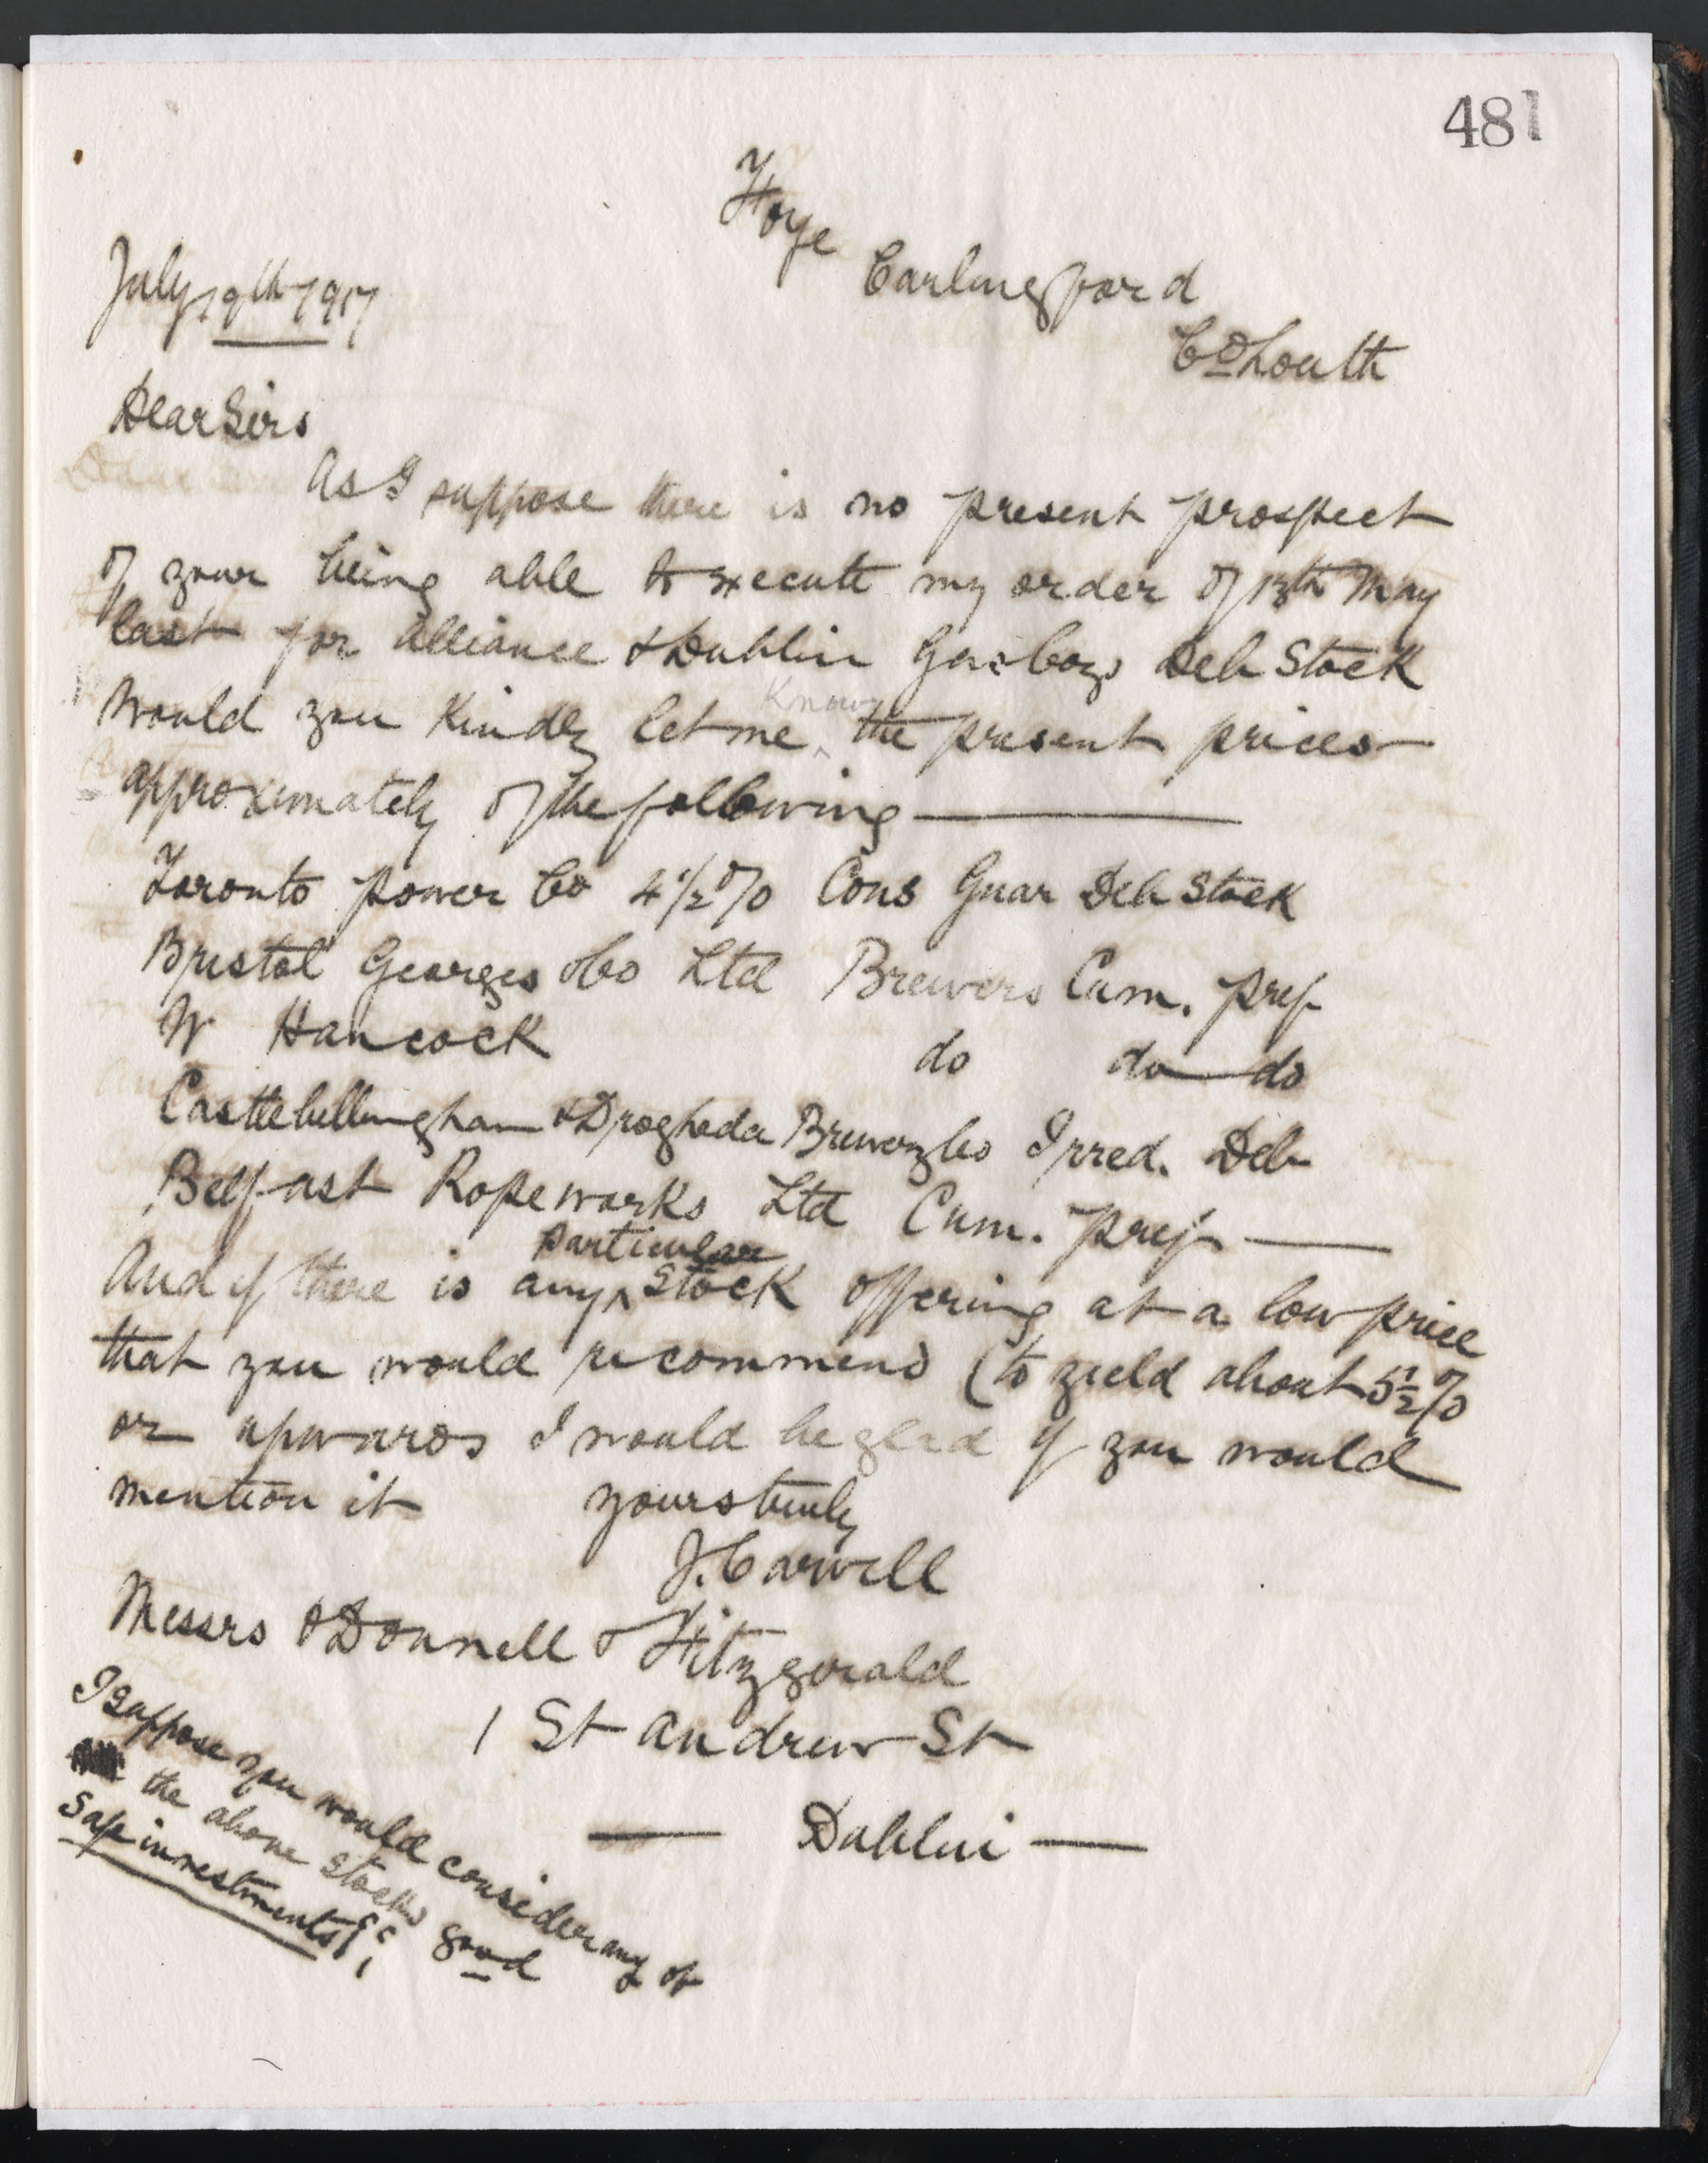 481
Foye
Carlingford
Co Louth
July 19th 1917
Dear Sirs
As I suppose there is no present prospect
of your being able to execute my order of 13th May
last for Alliance & Dublin Gas Coys Deb Stock
Would you Kindly let me know the present prices
approximately of the following —
Toronto power Co 4 1/2 % Cons Guar Deb Stock
Bristol Georges & Co Ltd Brewers Cum. pref
W Hancock do do do
Castlebellingham & Drogheda Brewery Co Irred. Deb
Belfast Ropeworks Ltd Cum. pref —
And if there is any particular Stock offering at a low price
that you would recommend (to yield about 5 1/2 %
or upwards I would be glad if you would
mention it yours truly
J. Carvill
Messrs O'Donnell & Fitzgerald
1 St Andrew St
— Dublin —
I suppose you would consider any of
the above stocks good
safe investments?